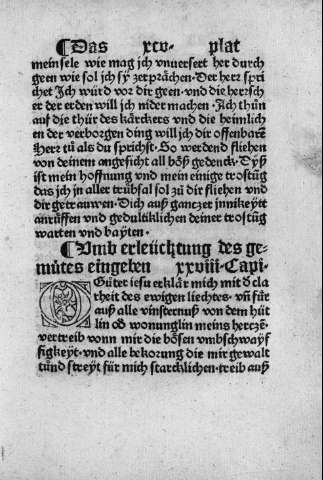 ¶Das xcv. plat
mein sele wie mag ich vnuersert her durch
geen wie sol ich sÿ zerprächen. Der herr spri
chet Ich würd vor dir geen. vnd die herrsch
er der erden will ich nider machen. Ich thůn
auf die thür des kärckers vnd die heimlich
en der verborgen ding will ich dir offenbarē
Herr tů als du sprichst. So werdend fliehen
von deinem angesicht all böß gedenck. Dyß
ist mein hoffnung vnd mein einige trostūg
das ich jn aller trübsal sol zů dir fliehen vnd
dir getrauwen. Dich auß gantzer innikeytt
anrüffen vnd gedultiklichen deiner trostūg
warten vnd bayten.
¶Vmb erleüchtung des ge-
můtes eingeben xxviii. Capi.
O Güter iesu erklär mich mit d̄ cla
rheit des ewigen liechtes. vñ für
auß alle vinsternuß von dem hüt
lin oď wonunglin meins hertzē.
vertreib vonn mir die bösen vmbschwayf
figkeyt. vnd alle bekorung die mir gewalt
tůnd streyt für mich starcklichen. treib auß